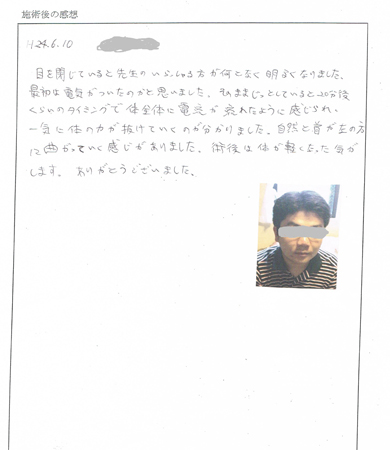 施術後の感想
H24.6.10
目を閉じていると先生のいらっしゃる方が何となく明るくなりました。
最初は電気がついたのかと思いました。そのままじっとしていると20分後
くらいのタイミングで体全体に電流が流れたように感じられ、
一気に体の力が抜けていくのが分かりました。自然と首が左の方
に曲がっていく感じがありました。術後は体が軽くなった気が
します。ありがとうございました。